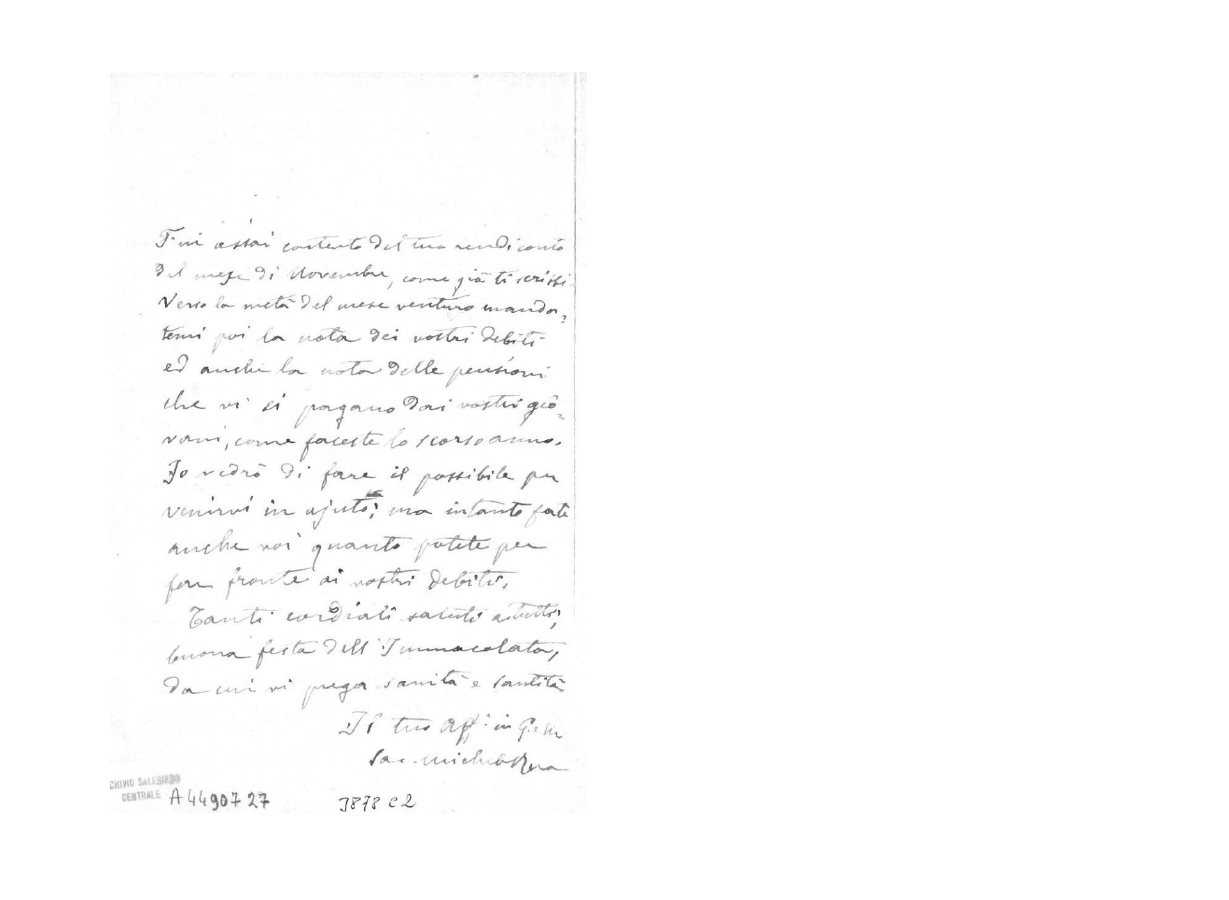 Fui assai contento del tuo rendiconto
del mese di Novembre, come già ti scrissi.
Verso la metà del mese venturo manda=
temi poi la nota dei vostri debiti
ed anche la nota delle pensioni
che vi si pagano dai vostri gio=
vani, come faceste lo scorso anno.
Io vedrò di fare il possibile per
venirvi in ajuto; ma intanto fate
anche voi quanto potete per
far fronte ai vostri debiti.
Tanti cordiali saluti a tutti;
buona festa dell'Immacolata,
da cui vi prega sanità e santità
Il tuo aff. in G. e M.
Sac. Michele Rua
CHIVIO SALESIANO
CENTRALE A4490727 3878 C2